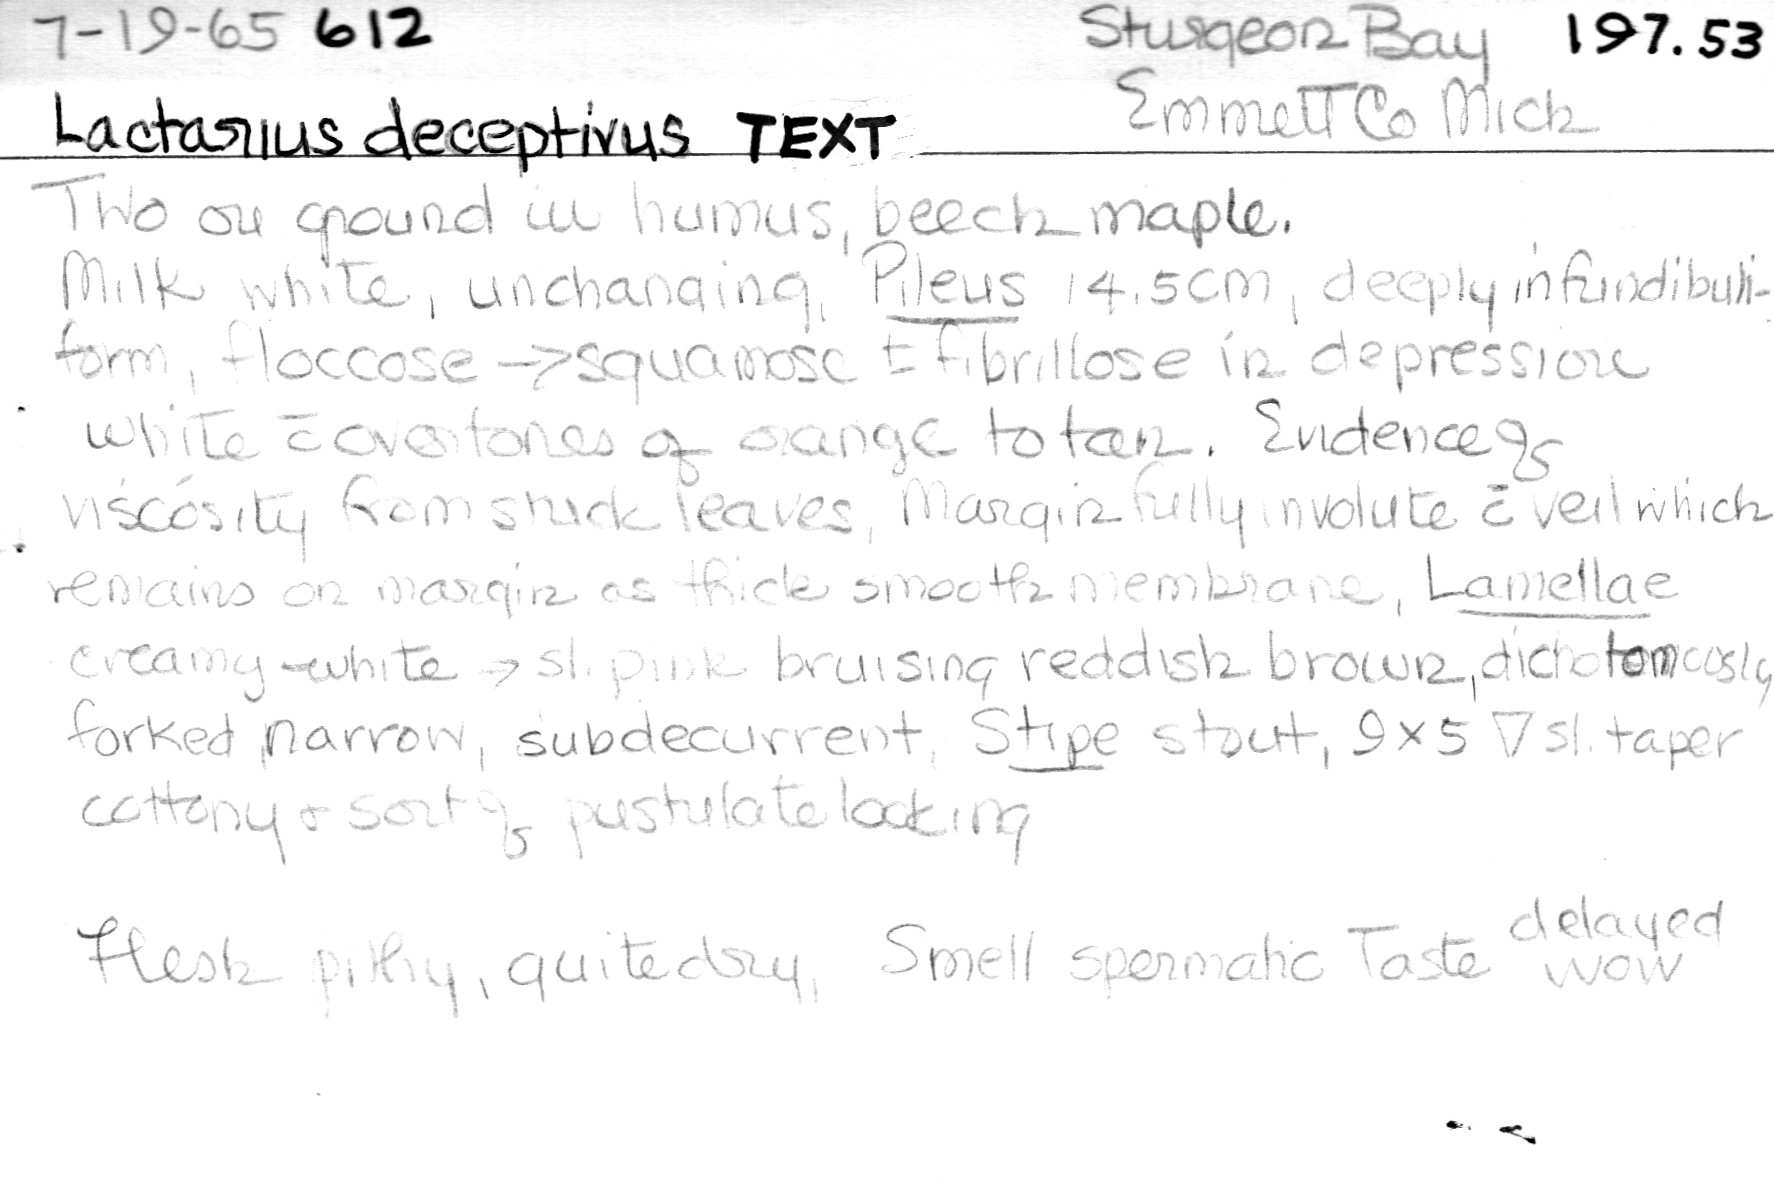 7-19-65 612 Sturgeon Bay 197.53
Emmett Co Mich
Lactarius deceptivus TEXT
Two on ground in humus, beech maple.
Milk white, unchanging, Pileus 14.5cm, deeply infundibuli-
form, floccose → squamose ± fibrillose in depression
white c̄ overtones of orange to tan. Evidence of
viscosity from stuck leaves, Margin fully involute c̄ veil which
remains on margin as thick smooth membrane, Lamellae
creamy-white → sl. pink bruising reddish brown, dichotomously
forked narrow, subdecurrent, Stipe stout, 9x5 ▽ sl. taper
cottony & sort of pustulate looking
Flesh pithy, quite dry, Smell spermatic Taste delayed
wow